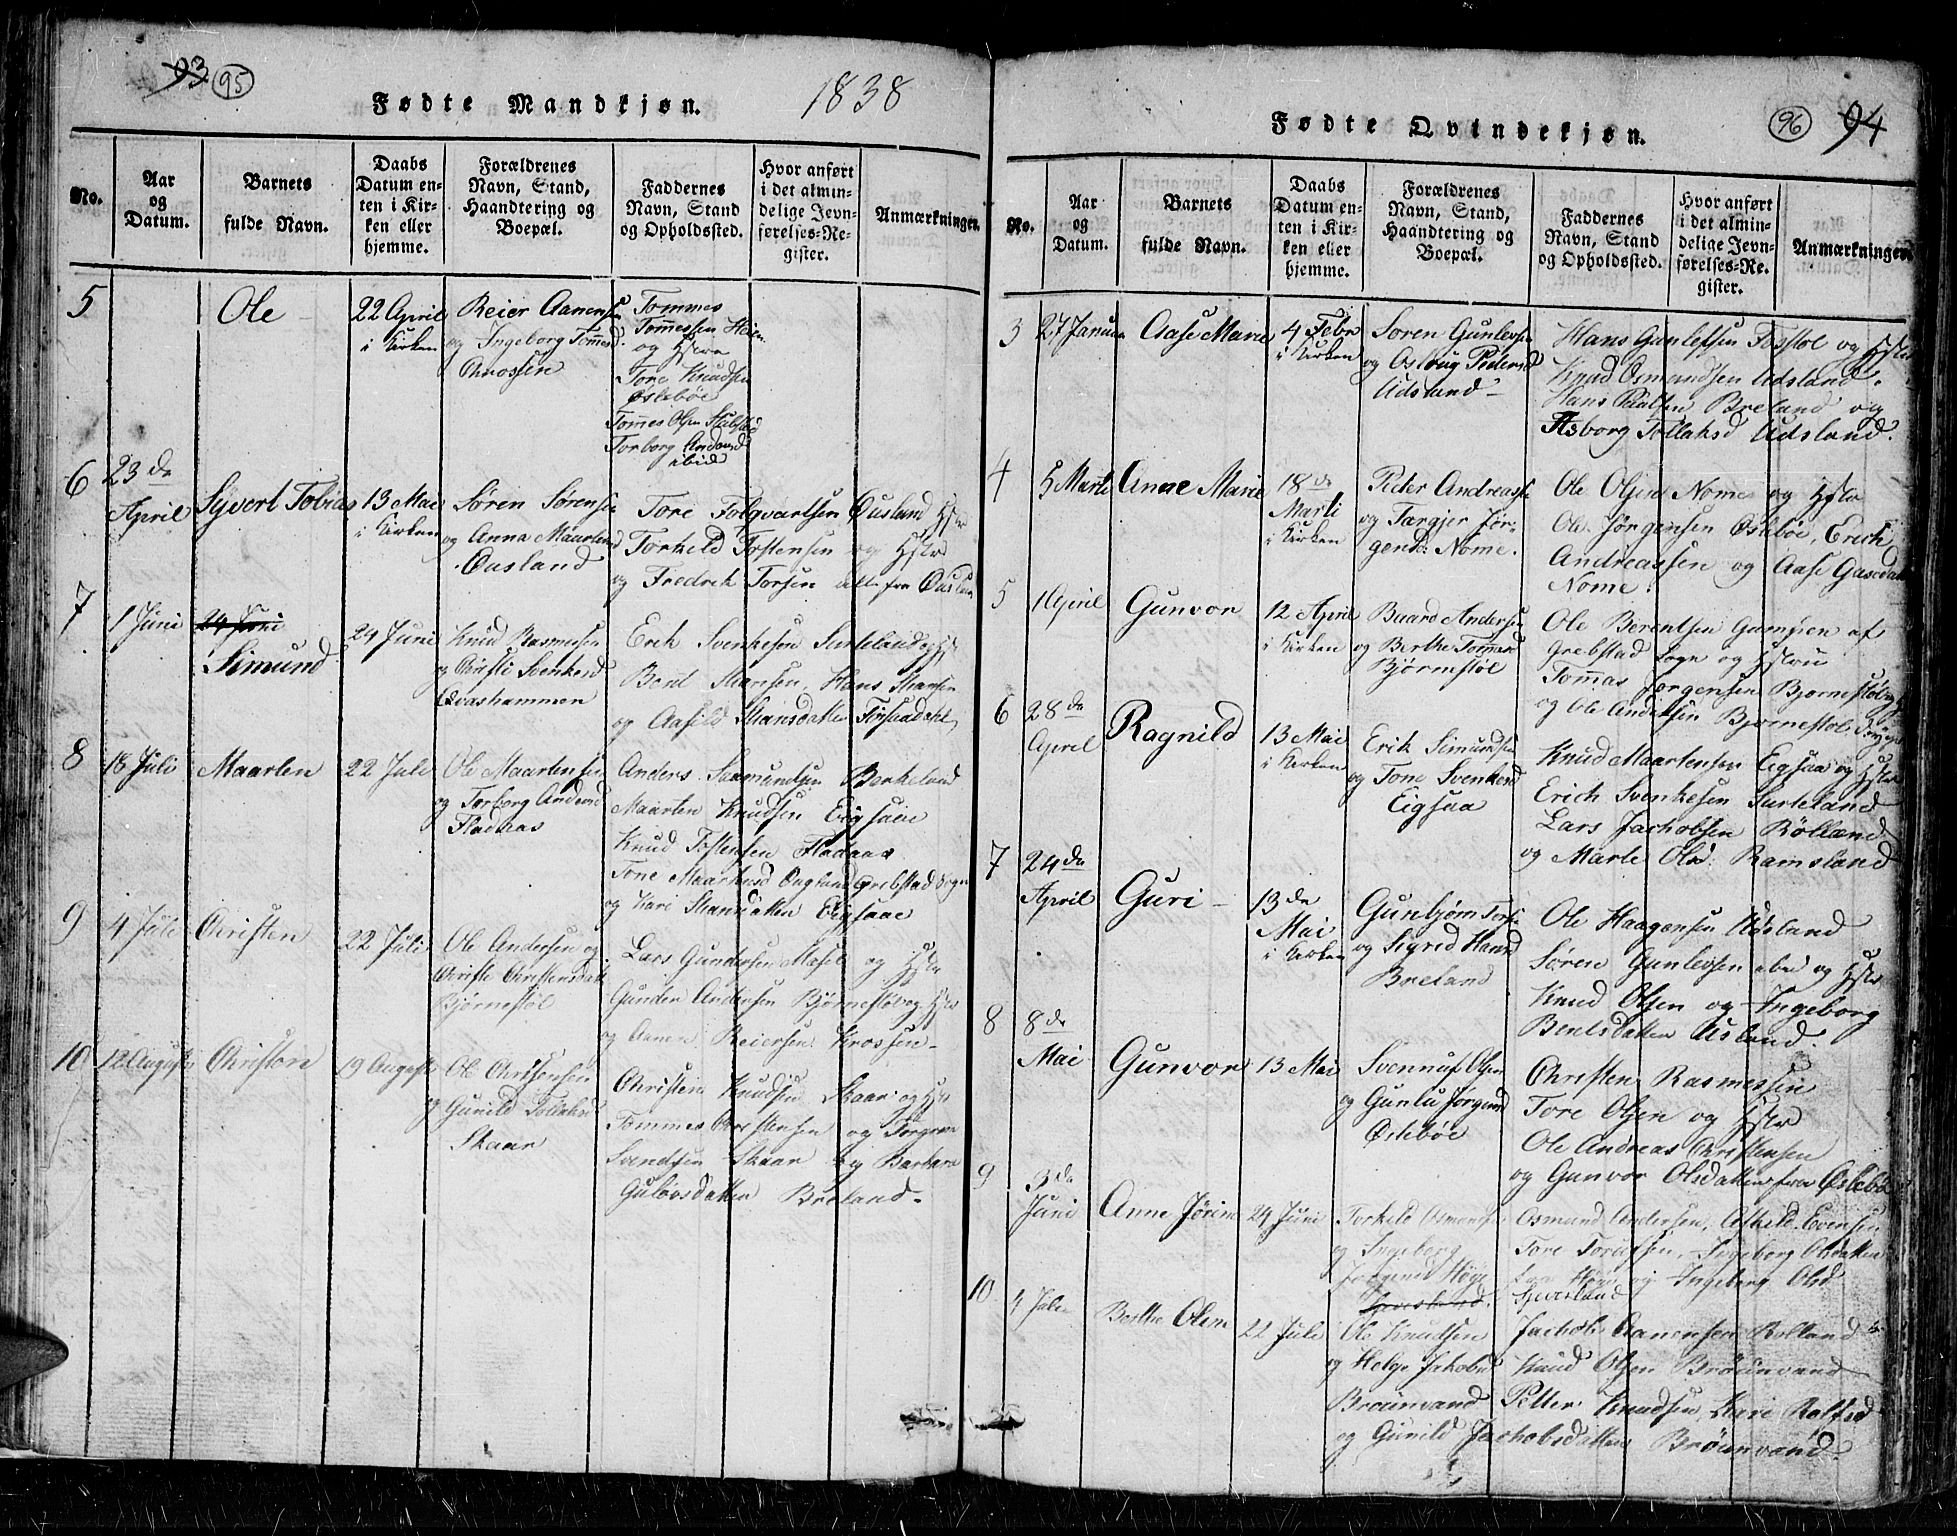 93 95
Fødte Mandkjøn.
1838
No.
Aar
og
Datum.
Barnets
fulde Navn.
Daabs
Datum en-
ten i Kir-
ken eller
hjemme.
Forældrenes
Navn, Stand,
Haandtering og
Boepæl.
Faddernes
Navn, Stand
og Opholdssted.
Hvor anført
i det almin-
delige Jevn-
førelses-Re-
gister.
Anmærkninger.
5
Ole
22 April
i Kirken
Reier Aanensen
og Ingeborg Tommesd.
Krossen
Tommes
Tommessen Heien
og Hstru
Tore Knudsen
Øslebøe
Tommes Olsen
Torborg Andersd
ibid
6
23de
April
Syvert Tobias
13 Mai
i Kirken
Søren Sørensen
og Anna Maartensd
Ousland
Tore Folqvartsen Ousland Hstr
Torkild Tostensen og Hstr
og Fredrik Torsen alle fra Ousland
7
1 Juni
24 Juni
Simund
24 Juni
Knud Rasmussen
og Christi Svenkesd
Qvashammen
Erik Svenkesen Surteland og Hst
Bent Hansen, Hans Hansen
og Aasild Hansdatter
8
18 Juli
Maarten
22 Juli
Ole Maartensen
og Torborg Andersd
Fladaas
Anders Saamundsen Birkeland
Maarten Knudsen Eigsaae
Knud Tostensen Fladaas
Tone Maartensd Ougland Grebstad Sogn
og Kari Hansdatter Eigsaae
9
4 Juli
Christen
22 Juli
Ole Andersen og
Christi Christensdatt
Bjørnestøl
Lars Gundersen Mosel og Hstr
Gunder Andersen Bjørnestøl og Hstr
og Aanen Reiersen Krossen
10
12 August
Christen
19 August
Ole Christensen
og Gunild Tollaksd
Skaar
Christen Knudsen Skaar og Hstr
Tommes Christensen og Torgrim
Svendsen Skaar og Barbara
Guløvsdatter Breland.
Fødte Qvindekjøn.
96 94
No.
Aar
og
Datum.
Barnets
fulde Navn.
Daabs
Datum en-
ten i Kir-
ken eller
hjemme.
Forældrenes
Navn, Stand,
Haandtering og
Boepæl.
Faddernes
Navn, Stand
og Opholdssted.
Hvor anført
i det almin-
delige Jevn-
førelses-Re-
gister.
Anmærkninger.
3
27 Januar
Aase Marie
4 Febr
i Kirken
Søren Gunlevsen
og Oslaug Pedersd
Udsland
Hans Gunlefsen Fostøl og Hstr
Knud Osmundsen Udsland.
Hans Paalsen Breland og
Asborg Tollaksd Udsland.
4
5 Marti
Anne Marie
18de
Marti
i Kirken
Peter Andreassen
og Targjer Jør-
gensd: Nome.
Ole Olsen Nome og Hstr
Ole Jørgensen Øslebøe, Erich
Andreassen og Aase Gasedal
Nome.
5
1 April
Gunvor
12 April
i Kirken
Baard Andersen
og Berthe Tommesd
Bjørnestøl
Ole Berentsen Gumpen af
Grebstad Sogn og Hstru
Tommas Jørgensen Bjørnestøl og
og Ole Andersen Bjørnestøl
6
28de
April
Ragnild
13 Mai
i Kirken
Erik Simundsen
og Tone Svenkesd
Eigsaa
Knud Maartensen Eigsaa og Hstr
Erich Svenkesen Surteland
Lars Jachobsen Røllend
og Marte Olsd: Ramsland
7
24de
April
Guri
13de
Mai
i Kirken
Gunbjørn Torsen
og Sigrid Hansd
Breland
Ole Haagensen Udsland
Søren Gunlevsen ibid og Hstr
Knud Olsen og Ingeborg
Bentsdatter Usland.
8
8de
Mai
Gunvor
13 Mai
Svennuf Olsen
og Gunlu Jørgensd
Øslebøe
Christen Rasmussen
Tore Olsen og Hstr
Ole Andreas Christensen
og Gunvor Olsdatter fra Øslebøe
9
3de
Juni
Anne Jørine
24 Juni
Torkild Osmundsen
og Ingeborg
Jørgensd Høye
Osmund Andersen, Askild Evensen
Tore Torkilsen, Ingeborg Olsdatter
fra Høye og Ingeborg Olsd
Hversland
10
4 Juli
Berthe Oline
22 Juli
Ole Knudsen
og Helge Jakobsd
Brøunvand
Jachob Aanensen Røiland
Knud Olsen Brøunvand
Petter Knudsen, Kari Rolfsd
og Gunild Jachobsdatter Brøunvand.